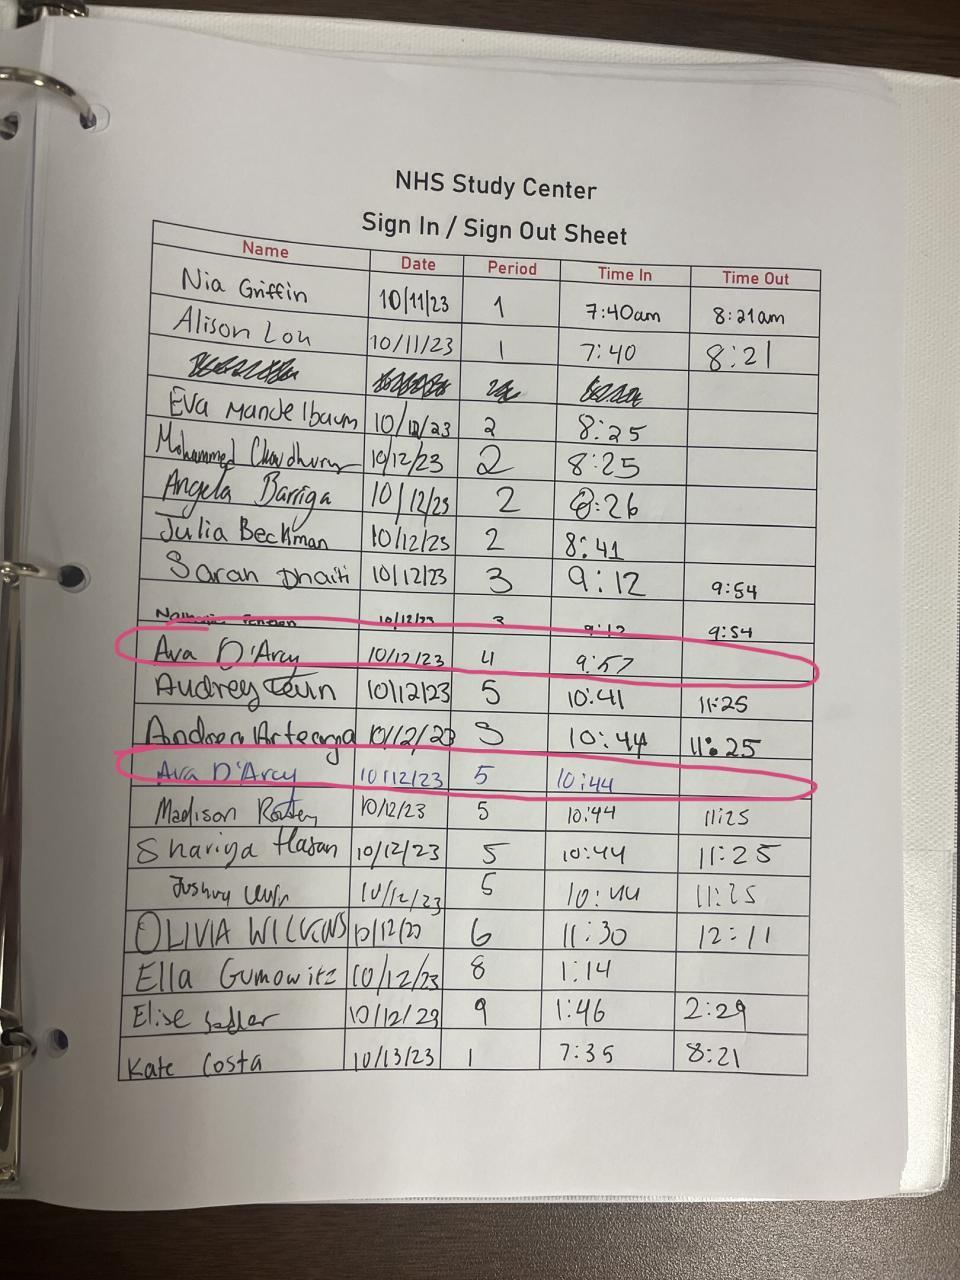 NHS Study Center
Sign In / Sign Out Sheet
Name Date Period Time In Time Out
Nia Griffin 10/11/23 1 7:40am 8:21am
Alison Lou 10/11/23 1 7:40 8:21
Eva Mandelbaum 10/12/23 2 8:25
Mohammed Chaudhury 10/12/23 2 8:25
Angela Barriga 10/12/23 2 8:26
Julia Beckman 10/12/23 2 8:41
Sarah Dhaiti 10/12/23 3 9:12 9:54
10/12/23 3 9:12 9:54
Ava D'Arcy 10/12/23 4 9:57
Audrey 10/12/23 5 10:41 11:25
Andrea Arteaga 10/12/23 3 10:44 11:25
Ava D'Arcy 10/12/23 5 10:44
Madison 10/12/23 5 10:44 11:25
Shariya Hasan 10/12/23 5 10:44 11:25
Joshua 10/12/23 5 10:44 11:25
OLIVIA WILKENS 10/12/23 6 11:30 12:11
Ella Gumowitz 10/12/23 8 1:14
Elise Sadler 10/12/29 9 1:46 2:29
Kate Costa 10/13/23 1 7:35 8:21